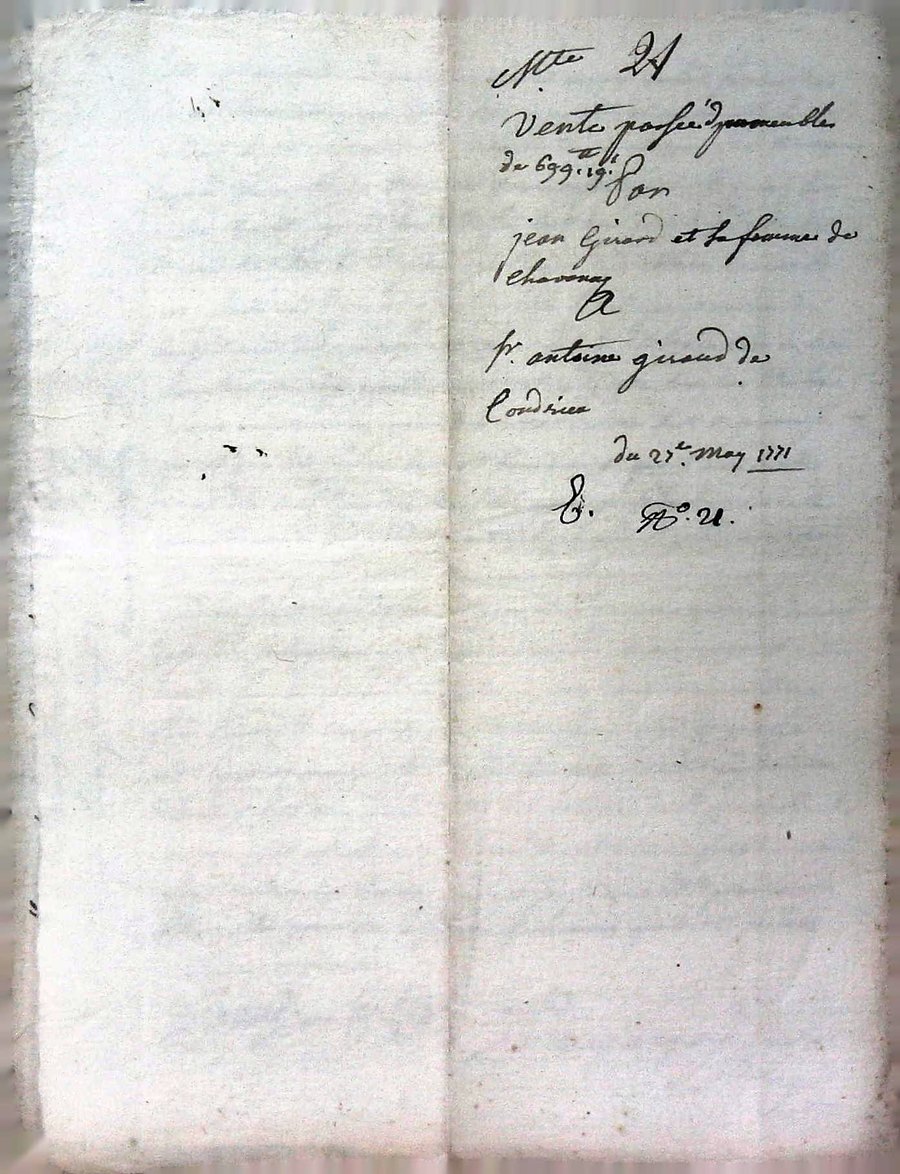 Cotte 21
Vente passée d'immeubles
de 699.ᵗᵗ 19.ˢ
Par
jean Girard et sa femme de
Chavanay
A
sʳ. antoine giraud de
Condrieu
du 27ᵉ. May 1771
E. Nº. 21.